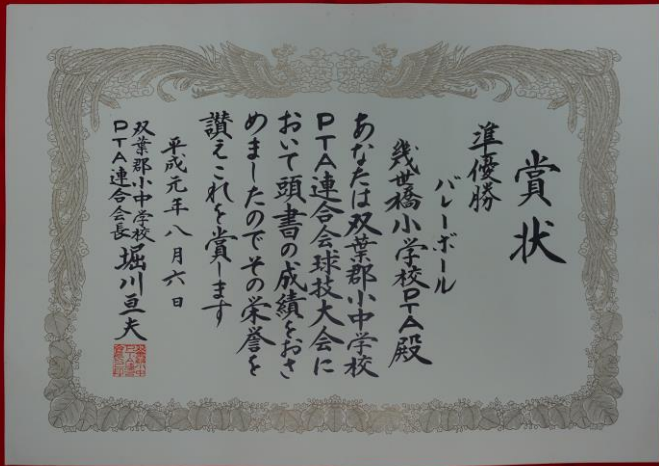 賞状
準優勝
バレーボール
幾世橋小学校PTA殿
あなたは双葉郡小中学校
PTA連合会球技大会に
おいて頭書の成績をおさ
めましたのでその栄誉を
讃えこれを賞します
平成元年八月六日
双葉郡小中学校
PTA連合会長 堀川亘夫